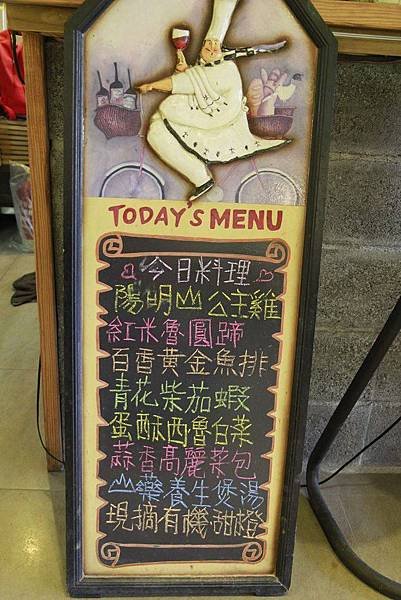 TODAY'S MENU
今日料理
陽明山公主雞
紅燒魯圓蹄
百香黃金魚排
青花柴茄蝦
蛋酥西魯白菜
蒜香高麗菜包
山藥養生煲湯
現摘有機甜橙